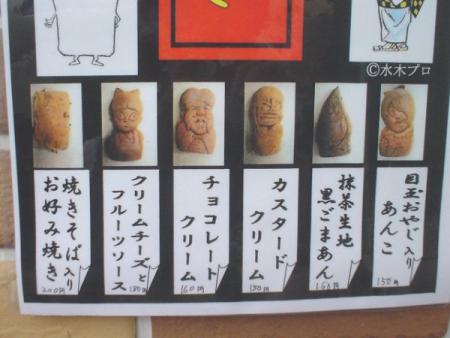 ©水木プロ
目玉おやじ入り
あんこ
150円
抹茶生地
黒ごまあん
160円
カスタード
クリーム
150円
チョコレート
クリーム
160円
クリームチーズと
フルーツソース
180円
焼きそば入り
お好み焼き
200円